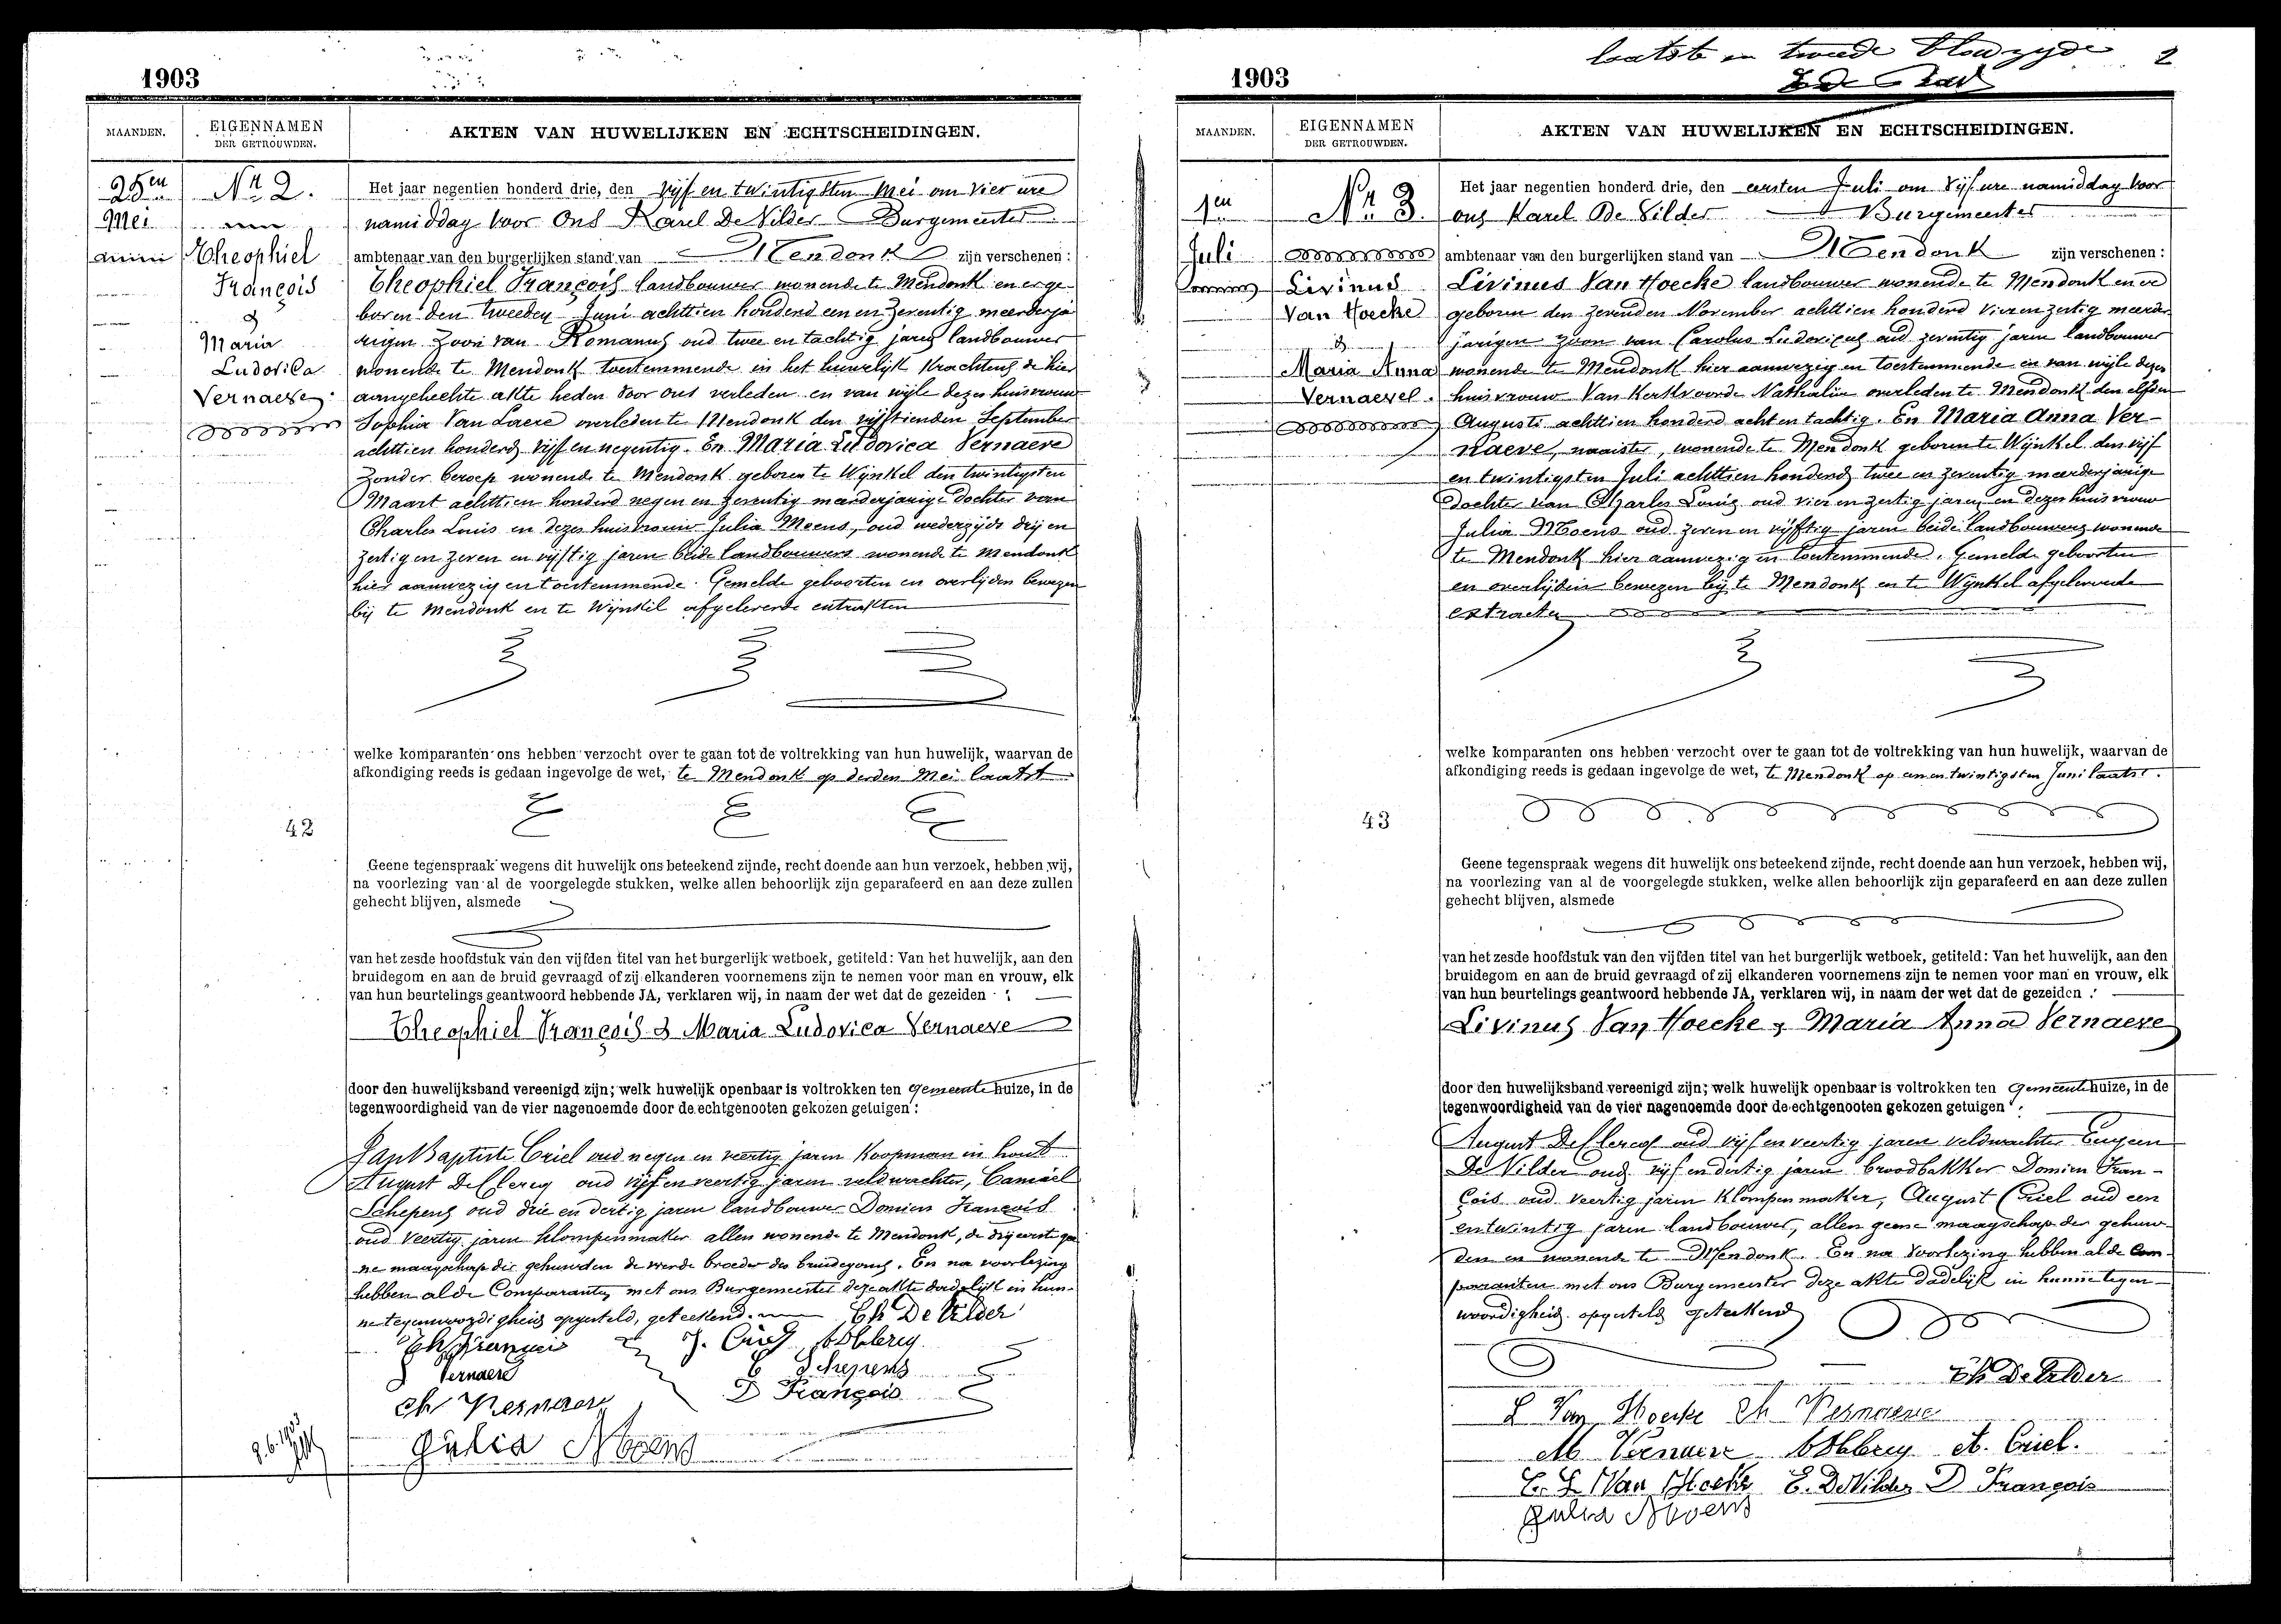 1903
MAANDEN.
EIGENNAMEN
DER GETROUWDEN.
AKTEN VAN HUWELIJKEN EN ECHTSCHEIDINGEN.
25en
Mei
Nr. 2.
Theophiel
François
&
Maria
Ludovica
Vernaeve
Het jaar negentien honderd drie, den vijf en twintigsten Mei om vier ure
namiddag voor Ons Karel De Vilder Burgemeester
ambtenaar van den burgerlijken stand van Mendonk zijn verschenen:
Theophiel François landbouwer wonende te Mendonk en er ge-
boren den tweeden Juni achttien honderd een en zeventig meerderja
rigen zoon van Romanus oud twee en tachtig jaren landbouwer
wonende te Mendonk toestemmende in het huwelijk krachtens de hier
aangehechte akte heden voor ons verleden en van wijle dezes huisvrouw
Sophia Van Laere overleden te Mendonk den vijftienden September
achttien honderd vijf en negentig. En Maria Ludovica Vernaeve
zonder beroep wonende te Mendonk geboren te Wynkel den twintigsten
Maart achttien honderd negen en zeventig meerderjarige dochter van
Charles Louis en dezes huisvrouw Julia Moens, oud wederzijds drij en
zestig en zeven en vijftig jaren beide landbouwers wonende te Mendonk
hier aanwezig en toestemmende. Gemelde geboorten en overlijden bewezen
bij te Mendonk en te Wynkel afgeleverde extrakten
welke komparanten ons hebben verzocht over te gaan tot de voltrekking van hun huwelijk, waarvan de
afkondiging reeds is gedaan ingevolge de wet, te Mendonk op derden Mei laatst
42
Geene tegenspraak wegens dit huwelijk ons beteekend zijnde, recht doende aan hun verzoek, hebben wij,
na voorlezing van al de voorgelegde stukken, welke allen behoorlijk zijn geparafeerd en aan deze zullen
gehecht blijven, alsmede
van het zesde hoofdstuk van den vijfden titel van het burgerlijk wetboek, getiteld: Van het huwelijk, aan den
bruidegom en aan de bruid gevraagd of zij elkanderen voornemens zijn te nemen voor man en vrouw, elk
van hun beurtelings geantwoord hebbende JA, verklaren wij, in naam der wet dat de gezeiden :
Theophiel François & Maria Ludovica Vernaeve
door den huwelijksband vereenigd zijn; welk huwelijk openbaar is voltrokken ten gemeente huize, in de
tegenwoordigheid van de vier nagenoemde door de echtgenooten gekozen getuigen:
Jan Baptiste Criel oud negen en veertig jaren Koopman in hout
August De Clercq oud vijf en veertig jaren veldwachter, Camiel
Schepens oud drie en dertig jaren landbouwer Domien François
oud veertig jaren klompenmaker allen wonende te Mendonk, de drij eerste gee
ne maagschap der gehuwden de vierde broeder des bruidegoms. En na voorlezing
hebben al de Comparanten met ons Burgemeester deze akte dadelijk in hun-
ne tegenwoordigheid opgesteld, geteekend. Ch De Vilder
Th François J. Criel A De Clercq
Vernaeve C Schepens
Ch Vernaeve D François
Julia Moens
1903
laatste en tweede bladzyde 2
MAANDEN.
EIGENNAMEN
DER GETROUWDEN.
AKTEN VAN HUWELIJKEN EN ECHTSCHEIDINGEN.
1en
Juli
Nr. 3.
Livinus
Van Hoecke
&
Maria Anna
Vernaeve
Het jaar negentien honderd drie, den eersten Juli om vijf ure namiddag voor
ons Karel De Vilder Burgemeester
ambtenaar van den burgerlijken stand van Mendonk zijn verschenen:
Livinus Van Hoecke landbouwer wonende te Mendonk en er
geboren den zevenden November achttien honderd vier en zestig meerder
jarigen zoon van Carolus Ludovicus oud zeventig jaren landbouwer
wonende te Mendonk hier aanwezig en toestemmende en van wijle dezes
huisvrouw Van Kerkvoorde Nathalia overleden te Mendonk den elfden
Augusti achttien honderd acht en tachtig. En Maria Anna Ver-
naeve, naaister, wonende te Mendonk geboren te Wynkel den vijf
en twintigsten Juli achttien honderd twee en zeventig meerderjarige
dochter van Charles Louis oud vier en zestig jaren en dezes huisvrouw
Julia Moens oud zeven en vijftig jaren beide landbouwers wonende
te Mendonk hier aanwezig en toestemmende. Gemelde geboorten
en overlijden bewezen bij te Mendonk en te Wynkel afgeleverde
extracten
welke komparanten ons hebben verzocht over te gaan tot de voltrekking van hun huwelijk, waarvan de
afkondiging reeds is gedaan ingevolge de wet, te Mendonk op een en twintigsten Juni laatst.
43
Geene tegenspraak wegens dit huwelijk ons beteekend zijnde, recht doende aan hun verzoek, hebben wij,
na voorlezing van al de voorgelegde stukken, welke allen behoorlijk zijn geparafeerd en aan deze zullen
gehecht blijven, alsmede
van het zesde hoofdstuk van den vijfden titel van het burgerlijk wetboek, getiteld: Van het huwelijk, aan den
bruidegom en aan de bruid gevraagd of zij elkanderen voornemens zijn te nemen voor man en vrouw, elk
van hun beurtelings geantwoord hebbende JA, verklaren wij, in naam der wet dat de gezeiden :
Livinus Van Hoecke & Maria Anna Vernaeve
door den huwelijksband vereenigd zijn; welk huwelijk openbaar is voltrokken ten Gemeente huize, in de
tegenwoordigheid van de vier nagenoemde door de echtgenooten gekozen getuigen :
August De Clercq oud vijf en veertig jaren veldwachter Eugeen
De Vilder oud vijf en dertig jaren broodbakker Domien Fran-
çois oud veertig jaren klompenmaker, August Criel oud een
en twintig jaren landbouwer, allen geene maagschap der gehuw-
den en wonende te Mendonk. En na voorlezing hebben al de Com-
paranten met ons Burgemeester deze akte dadelijk in hunne tegen-
woordigheid opgesteld geteekend
Ch De Vilder
L Van Hoecke Ch Vernaeve
M Vernaeve A De Clercq A. Criel.
C. L Van Hoecke E. De Vilder D François
Julia Moens